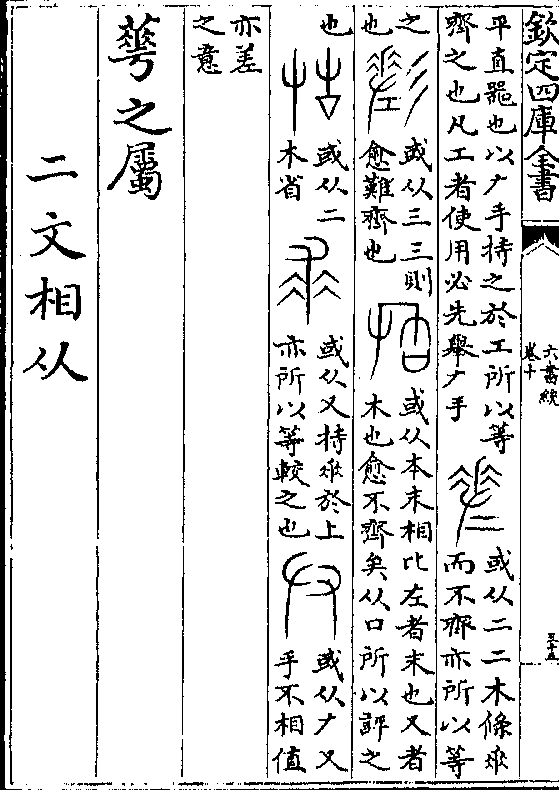 欽定四庫全書
六書統
卷十
三十五
平直噐也以𠂇手持之於工所以等
齊之也凡工者使用必先舉𠂇手
或从二二木條𠂹
而不齊亦所以等
之
也
或从三三則
愈難齊也
或从本末相比左者末也又者
木也愈不齊矣从口所以評之
也
或从二
木省
或从又持𠂹於上
亦所以等較之也
或从𠂇又
手不相值
亦差
之意
華之屬
二文相从